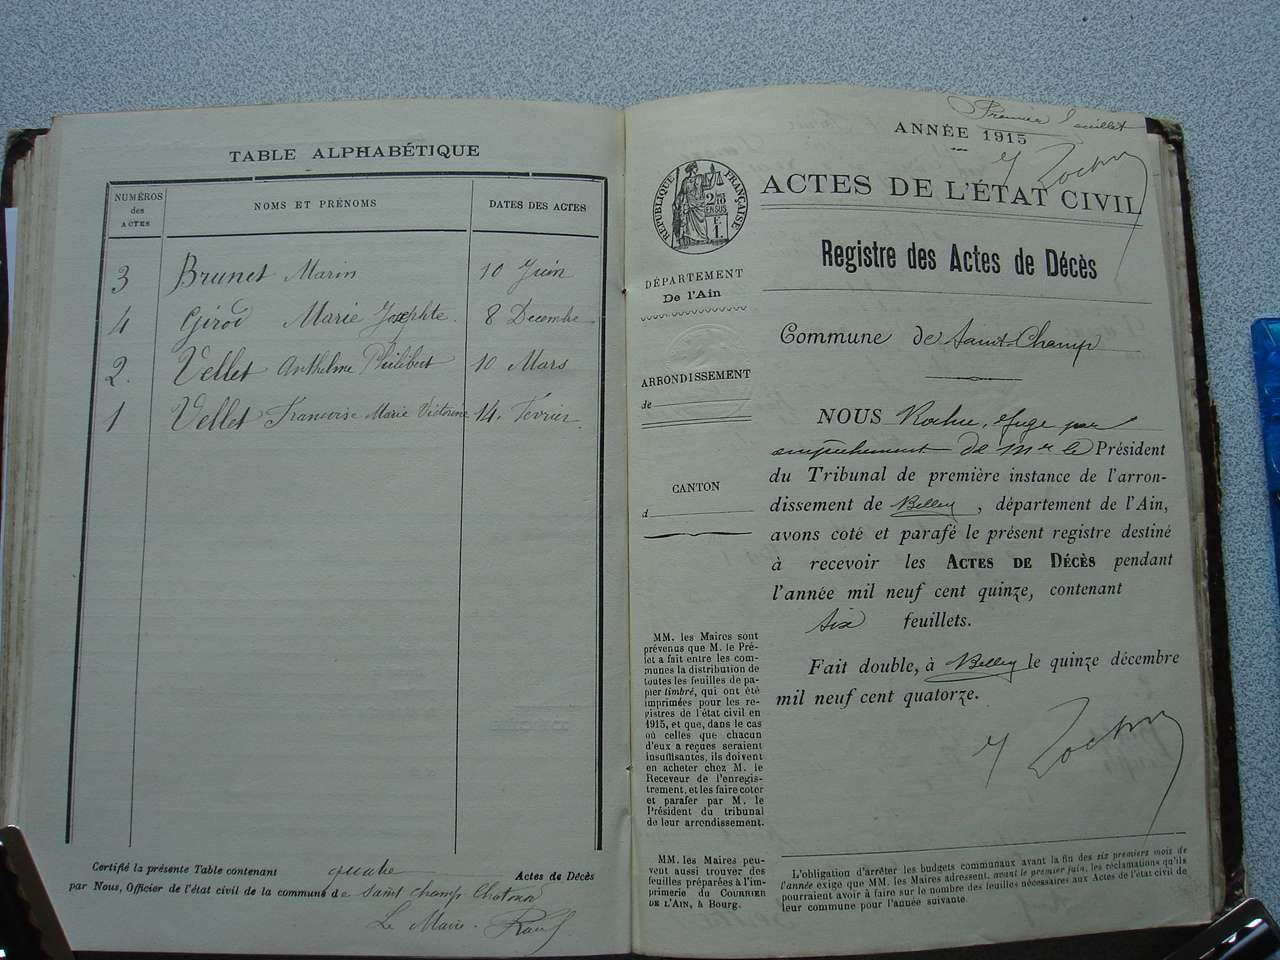 TABLE ALPHABÉTIQUE
NUMÉROS des ACTES
NOMS ET PRÉNOMS
DATES DES ACTES
3 Brunet Marin 10 Juin
4 Girod Marie Josephte 8 Decembre
2. Vellet Anthelme Philibert 10 Mars
1 Vellet Francoise Marie Victorine 14. Fevrier
Certifié la présente Table contenant quatre Actes de Décès
par Nous, Officier de l'état civil de la commune de Saint Champ Chatonod
Le Maire.
Premier feuillet
ANNÉE 1915
ACTES DE L'ÉTAT CIVIL
RÉPUBLIQUE FRANÇAISE
2/10 EN SUS
Registre des Actes de Décès
DÉPARTEMENT
De l'Ain
ARRONDISSEMENT
de
CANTON
d
Commune de Saint-Champ
NOUS Rochu, Juge par
empêchement de Mr le Président
du Tribunal de première instance de l'arron-
dissement de Belley, département de l'Ain,
avons coté et parafé le présent registre destiné
à recevoir les ACTES DE DÉCÈS pendant
l'année mil neuf cent quinze, contenant
six feuillets.
Fait double, à Belley le quinze décembre
mil neuf cent quatorze.
MM. les Maires sont
prévenus que M. le Pré-
fet a fait entre les com-
munes la distribution de
toutes les feuilles de pa-
pier timbré, qui ont été
imprimées pour les re-
gistres de l'état civil en
1915, et que, dans le cas
où celles que chacun
d'eux a reçues seraient
insuffisantes, ils doivent
en acheter chez M. le
Receveur de l'enregis-
trement, et les faire coter
et parafer par M. le
Président du tribunal
de leur arrondissement.
MM. les Maires peu-
vent aussi trouver des
feuilles préparées à l'im-
primerie du COURRIER
DE L'AIN, à Bourg.
L'obligation d'arrêter les budgets communaux avant la fin des six premiers mois de
l'année exige que MM. les Maires adressent, avant le premier juin, les réclamations qu'ils
pourraient avoir à faire sur le nombre des feuilles nécessaires aux Actes de l'état civil de
leur commune pour l'année suivante